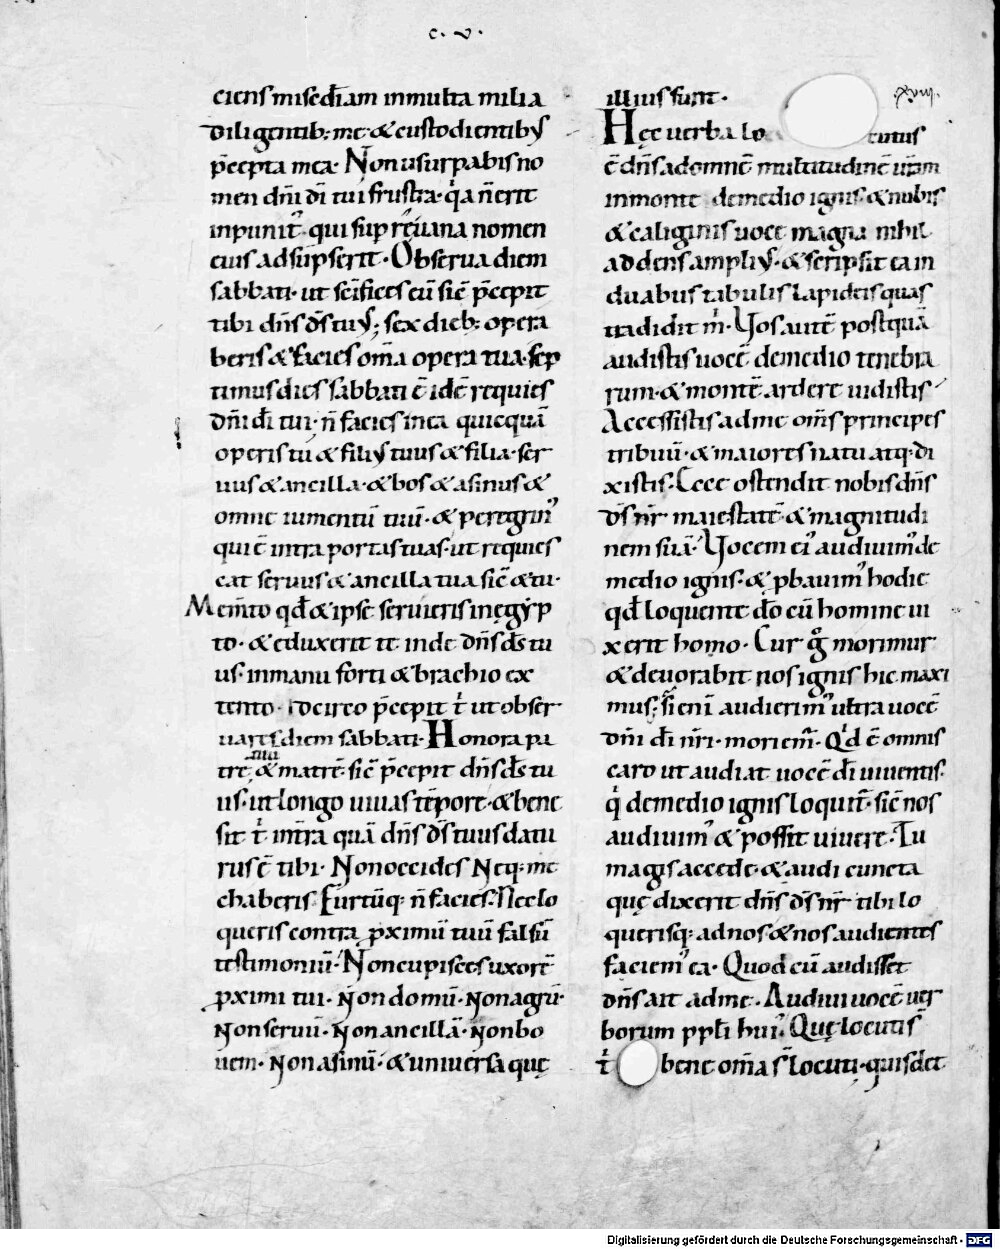 c. v.
ciens misẽdiam inmulta milia
diligentib; me & custodientibꝰ
p̄cepta mea. Non usurpabis no
men dn̄i dī tui frustra. q̇a ñ erit
inpunit᷒. qui sup re uana nomen
eius adsūpserit. Observa diem
sabbati. ut sc̄ifices eū sic̄ p̄cepit
tibi dn̄s ds̄ tuꝰ; sex dieb; opera
beris & facies om̄a opera tua. sep
timus dies sabbati ē idē requies
dn̄i dī tui. ñ facies in ea quicquā
operis tu & filiꝰ tuus & filia. ser
uus & ancilla. & bos & asinus &
omne iumentū tuū. & peregrin᷒
qui ē intra portas tuas. ut requies
cat seruus & ancilla tua sic̄ & tu.
Mem̄to qd̄ & ipse seruieris in ęgẏp
to. & eduxerit te inde dn̄s ds̄ tu
us. in manu forti & brachio ex
tento. Idcirco p̄cepit t̄ ut obser
uares diem sabbati. Honora pa
iiii
trē. & matrē. sic̄ p̄cepit dn̄s ds̄ tu
us. ut longo uiuas tēpore. & bene
sit t̄ in tr̄a quā dn̄s ds̄ tuus datu
rus ē tibi. Non occides Neq; me
chaberis. Furtūq; ñ facies. Nec lo
queris contra ꝓximū tuū falsū
testimoniū. Non cupisces uxorē
ꝓximi tui. Non domū. Non agrū.
Non seruū. Non ancillā. Non bo
uem. Non asinū. & uniuersa quę
illius sunt.
xviii.
Hęc uerba lo cutus
ē dn̄s ad omnē multitudinē ur̄am
in monte de medio ignis. & nubis
& caliginis uoce magna nihil
addens ampliꝰ. & scripsit ea in
duabus tabulis lapideis quas
tradidit m̄. Vos autē postquā
audistis uocē de medio tenebra
rum. & montē ardere uidistis
Accessistis ad me om̄s principes
tribuū. & maiores natu atq; di
xistis. Ecce ostendit nobis dn̄s
ds̄ nr̄ maiestatē & magnitudi
nem suā. Vocem ei᷒ audiuim᷒ de
medio ignis. & ꝓbauim᷒ hodie
qd̄ loquente dō cū homine ui
xerit homo. Cur g̊ morimur
& deuorabit nos ignis hic maxi
mus. Si eni audierim᷒ ultra uocē
dn̄i dī nr̄i. moriem̄. Qd̄ ē omnis
caro ut audiat uocē dī uiuentis.
q̇ de medio ignis loquit᷒. sic̄ nos
audiuim᷒ & possit uiuere. Tu
magis accede. & audi cuncta
quę dixerit dn̄s ds̄ nr̄ tibi lo
querisq; ad nos & nos audientes
faciem᷒ ea. Quod cū audisset
dn̄s ait ad me. Audiui uocē uer
borum ppl̄i hui᷒. Quę locuti s̄
t̄ bene om̄a s̄ locuti. quis det
Digitalisierung gefördert durch die Deutsche Forschungsgemeinschaft - DFG